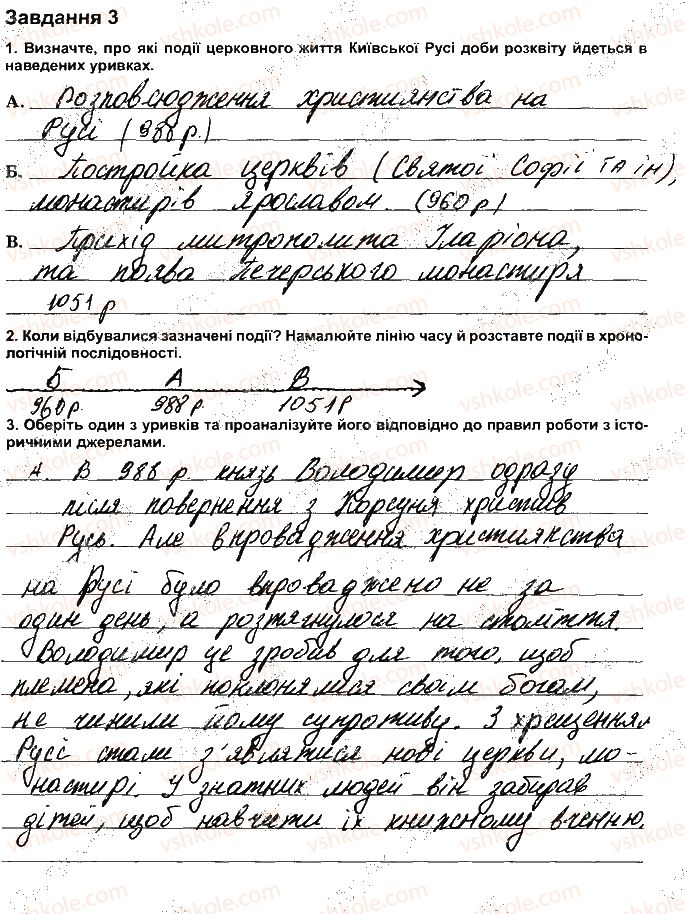 Завдання 3
1. Визначте, про які події церковного життя Київської Русі доби розквіту йдеться в
наведених уривках.
А. Розповсюдження християнства на
Русі (988 р.)
Б. Постройка церквів (Святої Софії та ін),
монастирів Ярославом. (960 р)
В. Прихід митрополита Іларіона,
та поява Печерського монастиря
1051 р
2. Коли відбувалися зазначені події? Намалюйте лінію часу й розставте події в хроно-
логічній послідовності.
Б А В
960 р. 988 р. 1051 р
3. Оберіть один з уривків та проаналізуйте його відповідно до правил роботи з істо-
ричними джерелами.
А. В 988 р. князь Володимир одразу
після повернення з Корсуня христив
Русь. Але впровадження християнства
на Русі було впроваджено не за
один день, а розтягнулося на століття.
Володимир це зробив для того, щоб
племена, які поклонялися своїм богам,
не чинили йому супротиву. З хрещенням
Руссі стали з'являтися нові церкви, мо-
настирі. У знатних людей він забирав
дітей, щоб навчати їх книжному вченню.
vshkole.com